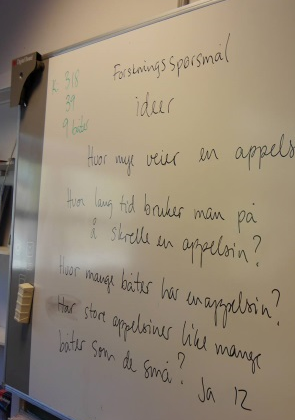 Forsknings spørsmål
ideer
318
39
9 båter
Hvor mye veier en appels
Hvor lang tid bruker man på
å skrelle en appelsin?
Hvor mange båter har en appelsin?
Har store appelsiner like mange
båter som de små? Ja 12